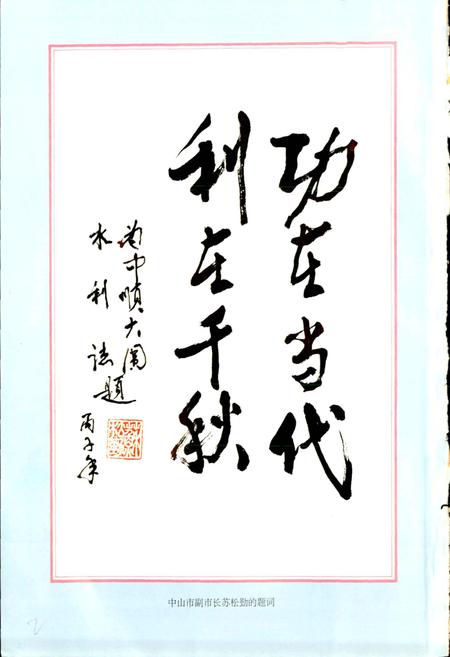 功在当代
利在千秋
为中顺大围
水利志题
丙子年
中山市副市长苏松勤的题词
2